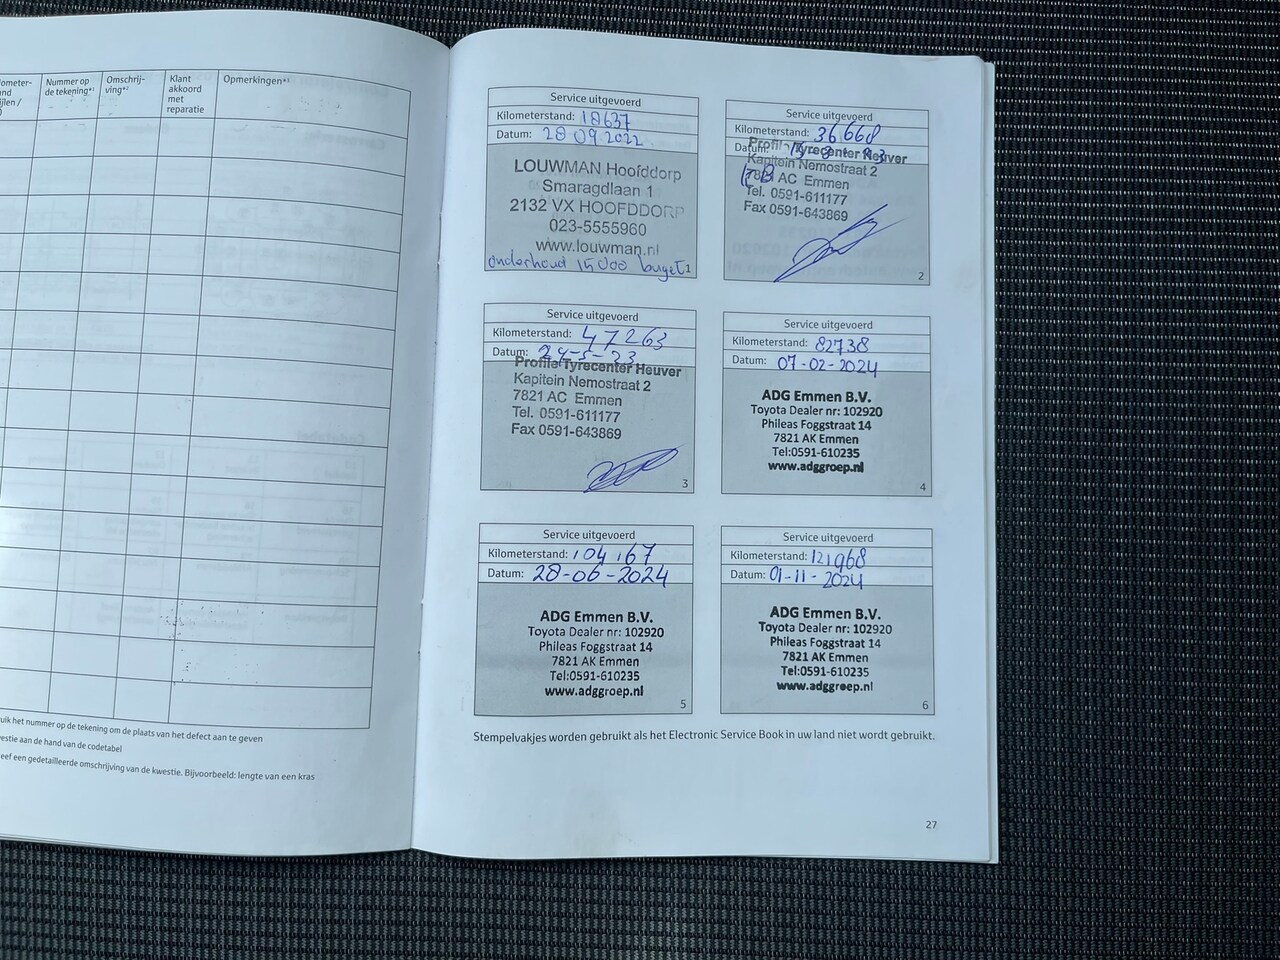 Nummer op
de tekening*¹
Omschrij-
ving*²
Klant
akkoord
met
reparatie
Opmerkingen*³
het nummer op de tekening om de plaats van het defect aan te geven
aan de hand van de codetabel
een gedetailleerde omschrijving van de kwestie. Bijvoorbeeld: lengte van een kras
Service uitgevoerd
Kilometerstand: 18637
Datum: 28 09 2022
LOUWMAN Hoofddorp
Smaragdlaan 1
2132 VX HOOFDDORP
023-5555960
www.louwman.nl
onderhoud 15000
1
Service uitgevoerd
Kilometerstand: 36668
Datum:
Profile Tyrecenter Heuver
Kapitein Nemostraat 2
AC Emmen
Tel. 0591-611177
Fax 0591-643869
2
Service uitgevoerd
Kilometerstand: 47263
Datum:
Profile Tyrecenter Heuver
Kapitein Nemostraat 2
7821 AC Emmen
Tel. 0591-611177
Fax 0591-643869
3
Service uitgevoerd
Kilometerstand: 82738
Datum: 07-02-2024
ADG Emmen B.V.
Toyota Dealer nr: 102920
Phileas Foggstraat 14
7821 AK Emmen
Tel:0591-610235
www.adggroep.nl
4
Service uitgevoerd
Kilometerstand: 104167
Datum: 28-06-2024
ADG Emmen B.V.
Toyota Dealer nr: 102920
Phileas Foggstraat 14
7821 AK Emmen
Tel:0591-610235
www.adggroep.nl
5
Service uitgevoerd
Kilometerstand: 121968
Datum: 01-11-2024
ADG Emmen B.V.
Toyota Dealer nr: 102920
Phileas Foggstraat 14
7821 AK Emmen
Tel:0591-610235
www.adggroep.nl
6
Stempelvakjes worden gebruikt als het Electronic Service Book in uw land niet wordt gebruikt.
27